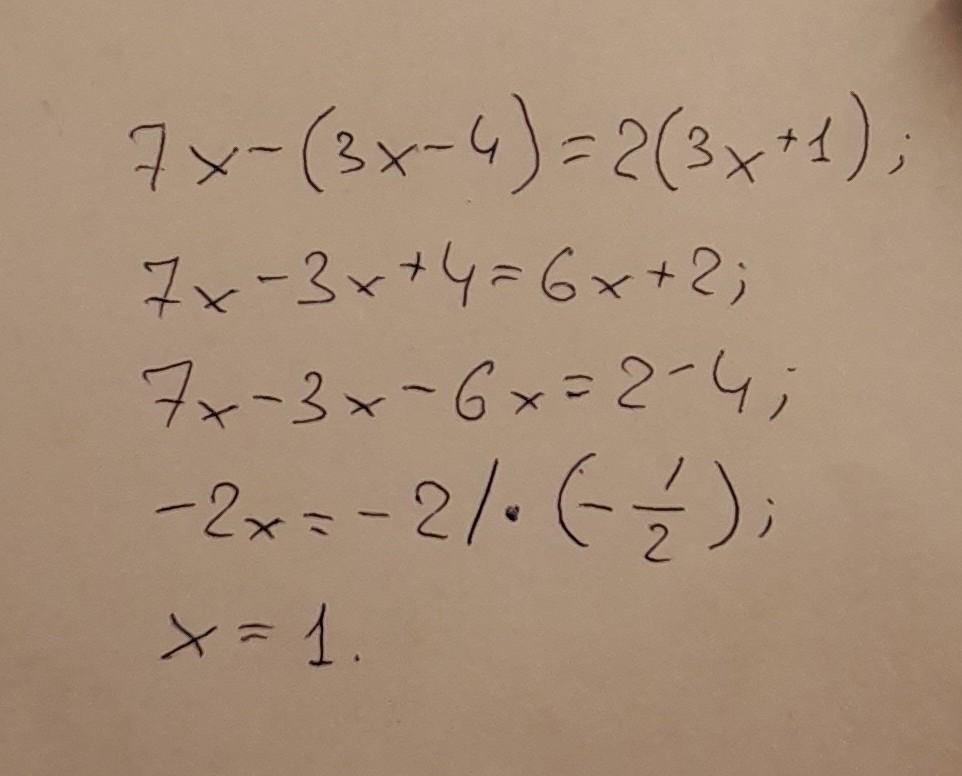 7x-(3x-4)=2(3x+1);
7x-3x+4=6x+2;
7x-3x-6x=2-4;
-2x=-2/·(-1/2);
x=1.